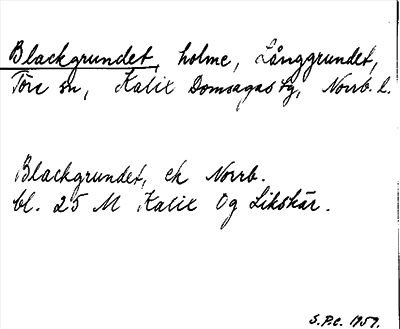 Blackgrundet, holme, Långgrundet,
Töre sn, Kalix Domsagas tg, Norrb. l.
Blackgrundet, ek Norrb.
bl. 25 M Kalix Og Likskär.
S.P.C. 1959.